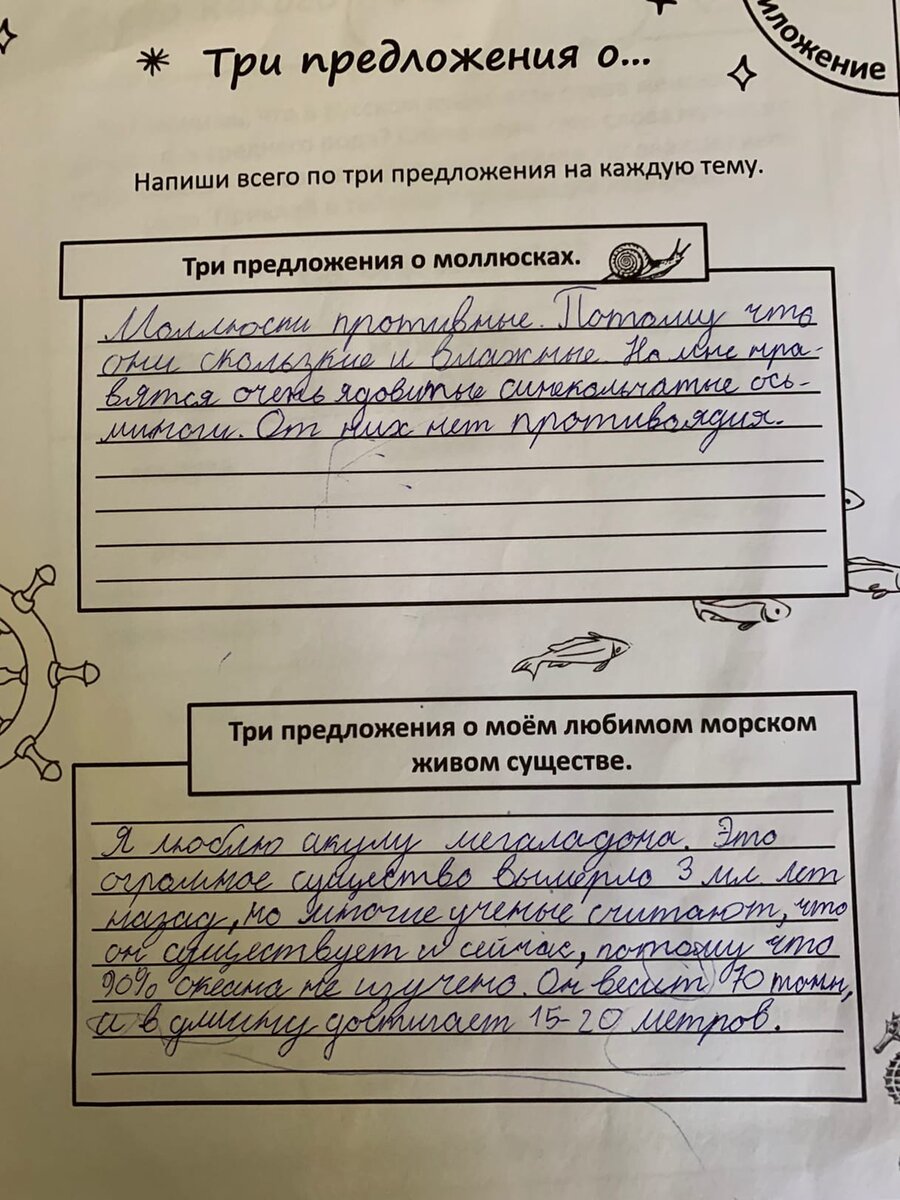 иложение
Три предложения о...
Напиши всего по три предложения на каждую тему.
Три предложения о моллюсках.
Моллюски противные. Потому что
они скользкие и влажные. Но мне нра-
вятся очень ядовитые синекольчатые ось-
миноги. От них нет противоядия.
Три предложения о моём любимом морском
живом существе.
Я люблю акулу мегаладона. Это
огромное существо вымерло 3 мл. лет
назад, но многие ученые считают, что
он существует и сейчас, потому что
90% океана не изучено. Он весит 70 тонн,
и в длинну достигает 15-20 метров.